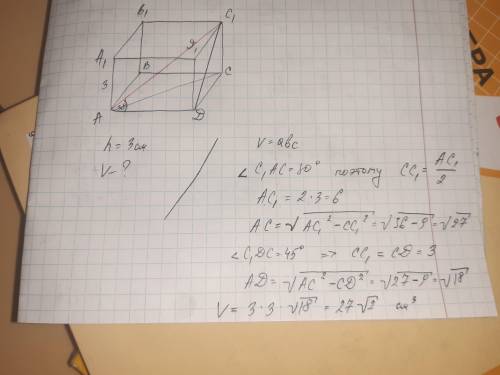 B₁
C₁
A₁
B
C
3
A
D
h = 3см
V - ?
V = abc
∠ C₁AC = 30° поэтому CC₁ = AC₁/2
AC₁ = 2·3 = 6
AC = √AC₁² - CC₁² = √36 - 9 = √27
∠ C₁DC = 45° => CC₁ = CD = 3
AD = √AC² - CD² = √27 - 9 = √18
V = 3·3·√18 = 27√2 см³